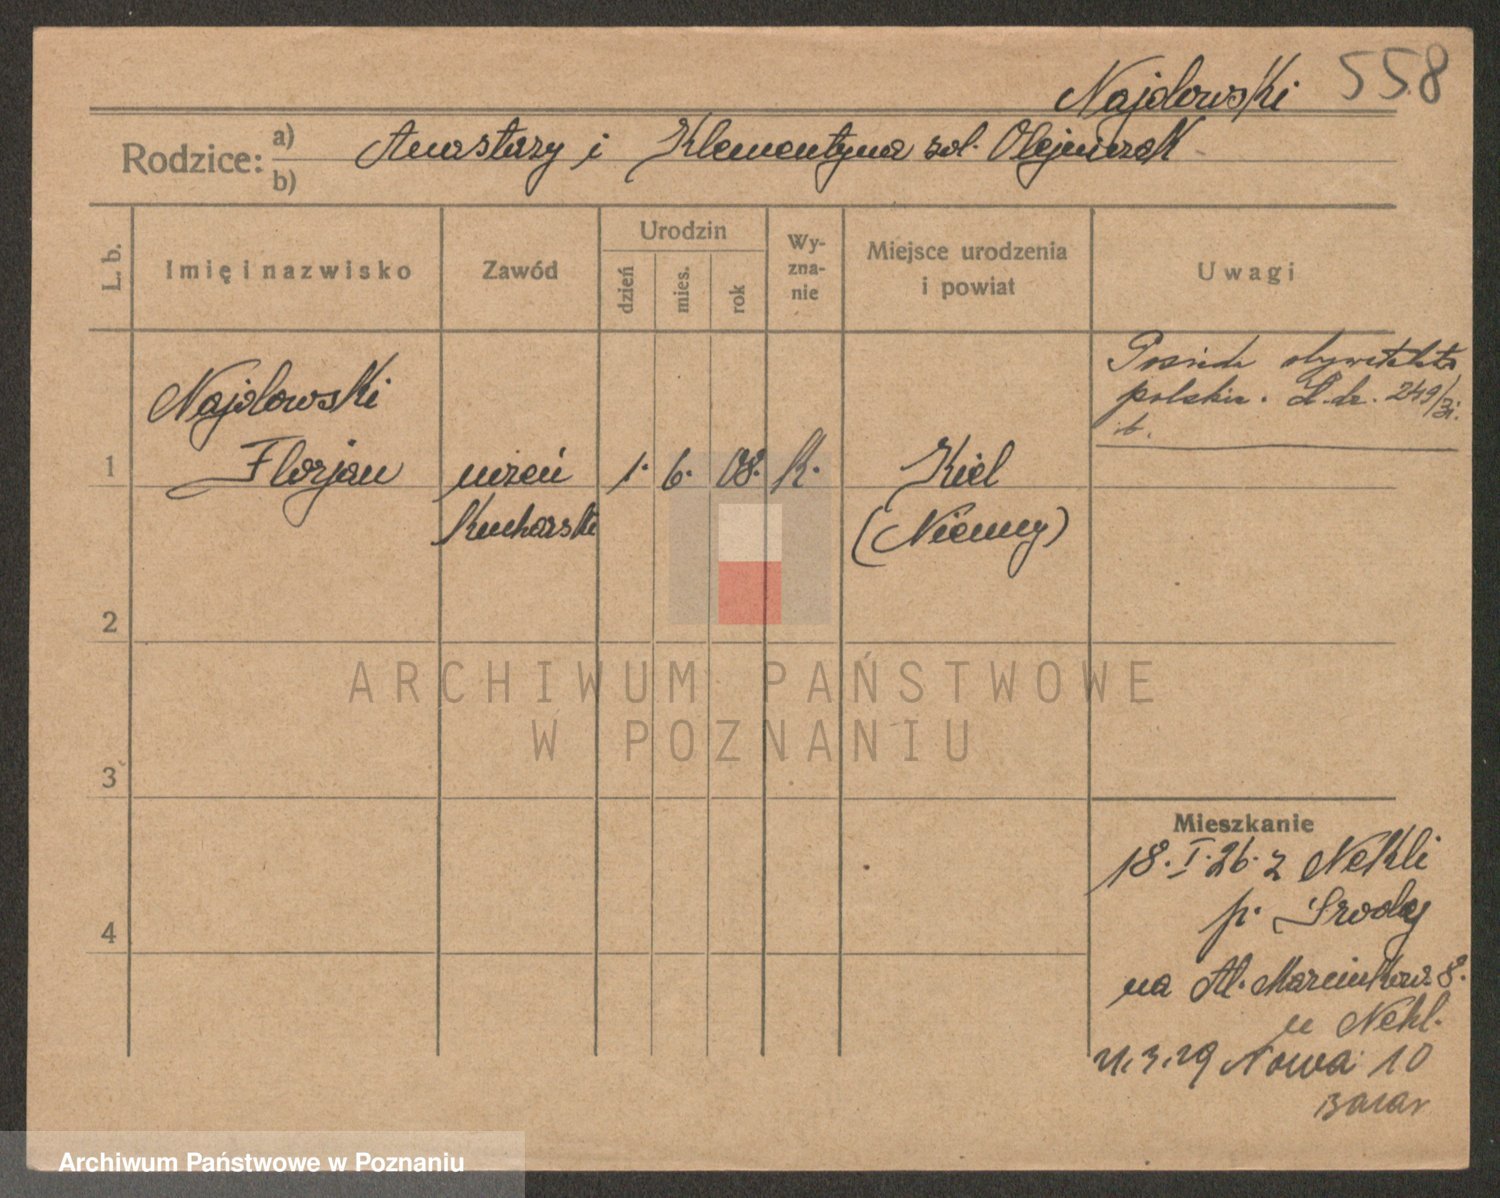 558
Najdowski
Rodzice: a) Anastazy i Klementyna zol. Olejniczak
b)
L. b.
Imię i nazwisko
Zawód
Urodzin
dzień
mies.
rok
Wy-
zna-
nie
Miejsce urodzenia
i powiat
Uwagi
Posiada obywatelstwo
polskie. L. dz. 249/31.
Najdowski
1 Florjan uczeń 1. 6. 08. k. Kiel
kucharski (Niemcy)
2
3
4
Mieszkanie
18.I.26. z Nekli
p. Środy
na Al. Marcinkow. 8.
u Nekl.
21.3.29 Nowa 10
Bazar
ARCHIWUM PAŃSTWOWE
W POZNANIU
Archiwum Państwowe w Poznaniu